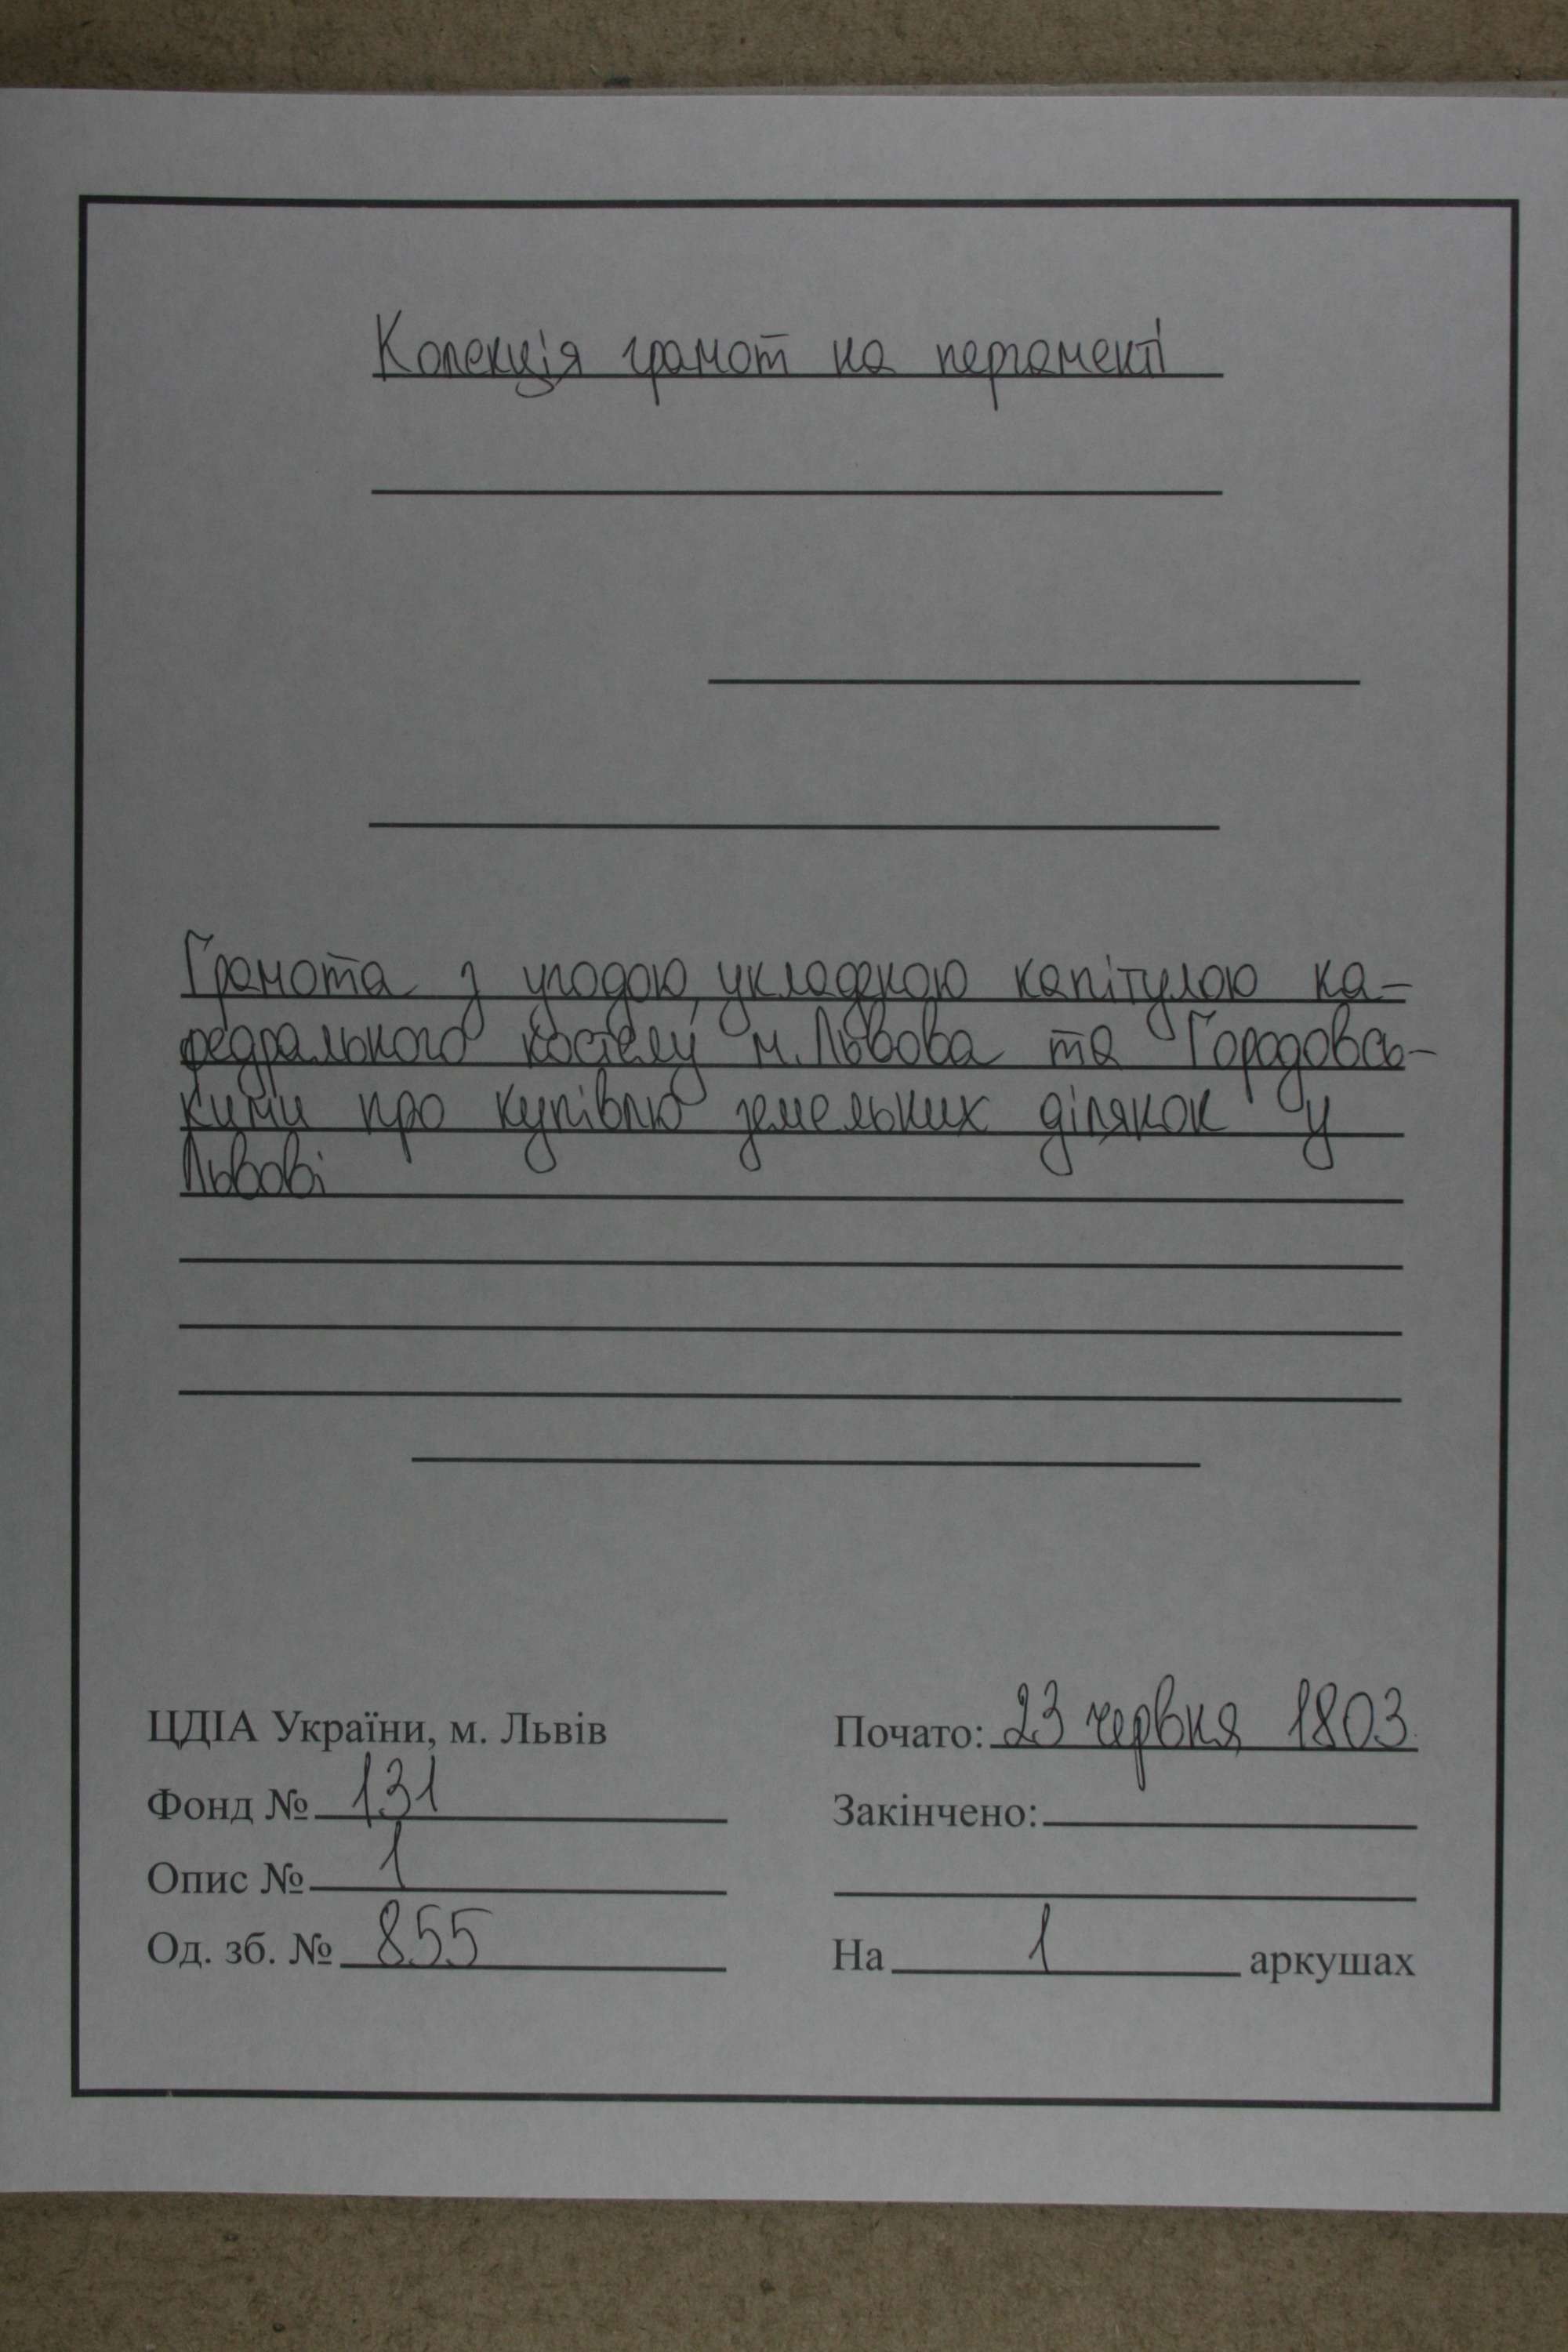 Колекція грамот на пергаменті
Грамота з угодою, укладеною капітулою ка-
федрального костелу м. Львова та Городовсь-
кими про купівлю земельних ділянок у
Львові
ЦДІА України, м. Львів
Фонд № 131
Опис № 1
Од. зб. № 855
Почато: 23 червня 1803
Закінчено:
На 1 аркушах